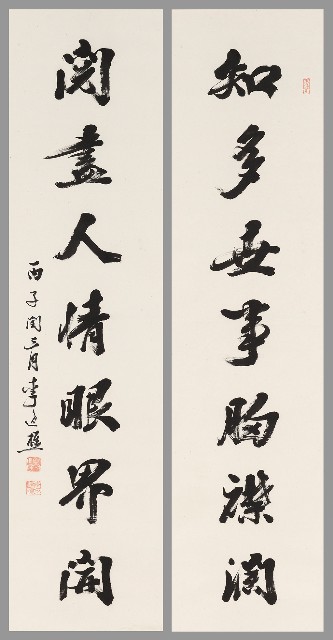 知多世事胸襟濶
閱盡人情眼界開
丙子閏三月李樵